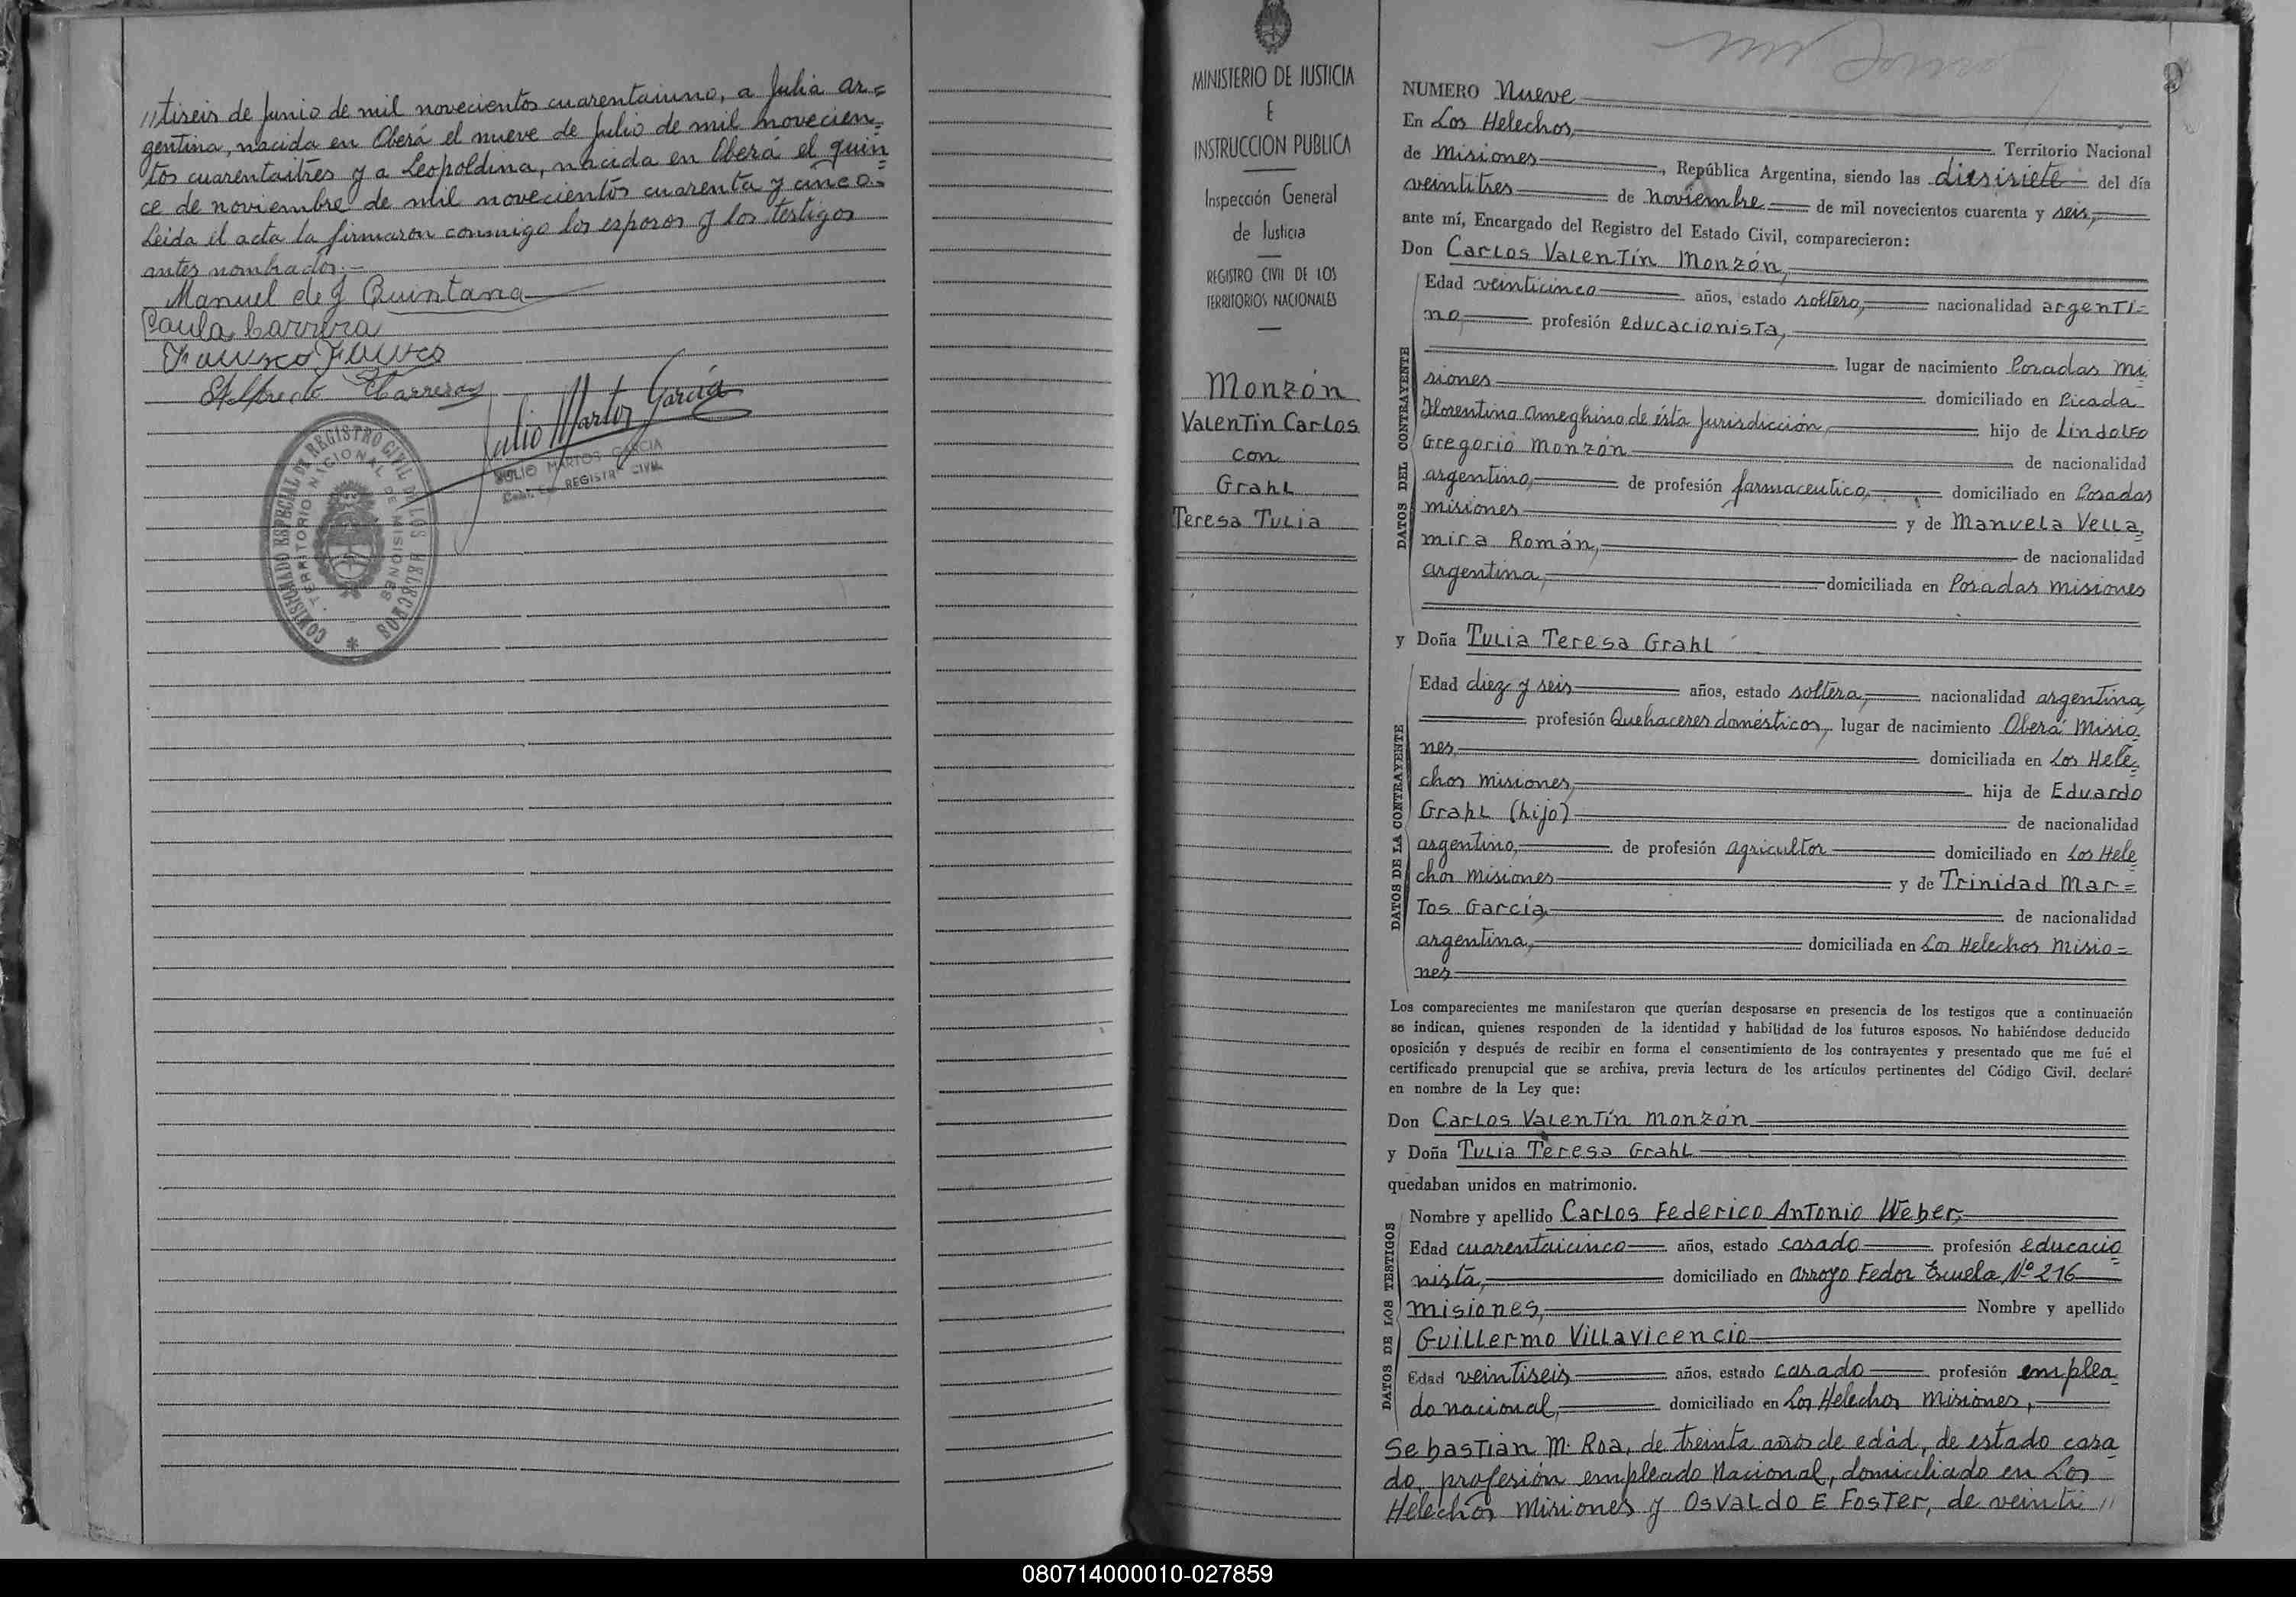 //tiseis de Junio de mil novecientos cuarentaiuno, a Julia ar=
gentina, nacida en Oberá el nueve de Julio de mil novecien=
tos cuarentaitres y a Leopoldina, nacida en Oberá el quin
ce de noviembre de mil novecientos cuarenta y cinco.=
Leida el acta la firmaron conmigo los esposos y los testigos
antes nombrados.—
Manuel de J Quintana
Paula Carrera
Carrera
Julio Martos García
JULIO MARTOS GARCIA
REGISTRO CIVIL
COMISIONADO ESPECIAL DE REGISTRO CIVIL DE LOS HELECHOS
TERRITORIO NACIONAL DE MISIONES
MINISTERIO DE JUSTICIA
E
INSTRUCCION PUBLICA
Inspección General
de Justicia
REGISTRO CIVIL DE LOS
TERRITORIOS NACIONALES
Monzón
Valentin Carlos
con
Grahl
Teresa Tulia
NUMERO Nueve
En Los Helechos, Territorio Nacional
de Misiones, República Argentina, siendo las diesisiete del día
veintitres de noviembre de mil novecientos cuarenta y seis,
ante mí, Encargado del Registro del Estado Civil, comparecieron:
Don Carlos Valentín Monzón,
DATOS DEL CONTRAYENTE
Edad veinticinco años, estado soltero, nacionalidad argenti=
no, profesión educacionista,
lugar de nacimiento Posadas Mi
siones domiciliado en Picada
Florentino Ameghino de ésta Jurisdicción, hijo de Lindolfo
Gregorio Monzón de nacionalidad
argentino, de profesión farmaceutico, domiciliado en Posadas
misiones y de Manuela Vella
mira Román, de nacionalidad
argentina, domiciliada en Posadas Misiones
y Doña Tulia Teresa Grahl
DATOS DE LA CONTRAYENTE
Edad diez y seis años, estado soltera, nacionalidad argentina,
profesión Quehaceres domésticos, lugar de nacimiento Oberá Misio
nes, domiciliada en Los Hele=
chos misiones, hija de Eduardo
Grahl (hijo) de nacionalidad
argentino, de profesión agricultor domiciliado en Los Hele
chos misiones y de Trinidad Mar=
tos García, de nacionalidad
argentina, domiciliada en Los Helechos Misio=
nes
Los comparecientes me manifestaron que querían desposarse en presencia de los testigos que a continuación
se indican, quienes responden de la identidad y habilidad de los futuros esposos. No habiéndose deducido
oposición y después de recibir en forma el consentimiento de los contrayentes y presentado que me fué el
certificado prenupcial que se archiva, previa lectura de los artículos pertinentes del Código Civil, declaré
en nombre de la Ley que:
Don Carlos Valentín Monzón
y Doña Tulia Teresa Grahl
quedaban unidos en matrimonio.
DATOS DE LOS TESTIGOS
Nombre y apellido Carlos Federico Antonio Weber,
Edad cuarentaicinco años, estado casado profesión educacio
nista, domiciliado en Arroyo Fedor Escuela Nº 216
misiones, Nombre y apellido
Guillermo Villavicencio
Edad veintiseis años, estado casado profesión emplea
do nacional, domiciliado en Los Helechos Misiones,
Sebastian M. Roa, de treinta años de edad, de estado casa
do, profesión empleado Nacional, domiciliado en Los
Helechos Misiones y Osvaldo E Foster, de veinti //
080714000010-027859